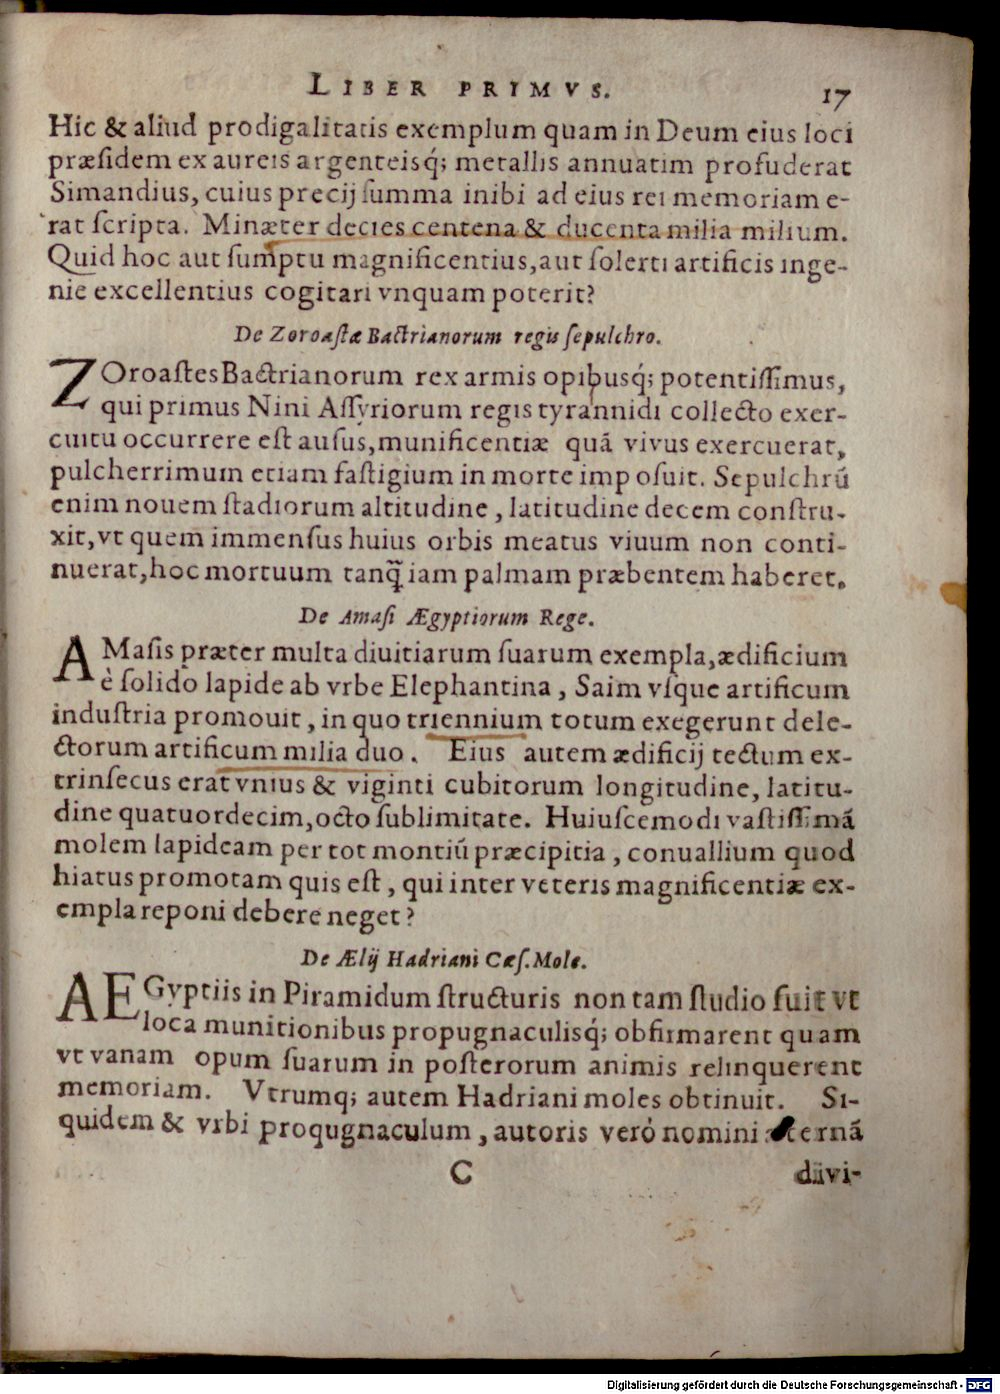 LIBER PRIMVS. 17
Hic & aliud prodigalitatis exemplum quam in Deum eius loci
præsidem ex aureis argenteisq́; metallis annuatim profuderat
Simandius, cuius precij summa inibi ad eius rei memoriam e-
rat scripta. Minæter decies centena & ducenta milia milium.
Quid hoc aut sumptu magnificentius, aut solerti artificis inge-
nie excellentius cogitari vnquam poterit?
De Zoroastæ Bactrianorum regis sepulchro.
ZOroastes Bactrianorum rex armis opibusq́; potentissimus,
qui primus Nini Assyriorum regis tyrannidi collecto exer-
cuitu occurrere est ausus, munificentiæ quā vivus exercuerat,
pulcherrimum etiam fastigium in morte imposuit. Sepulchrū
enim nouem stadiorum altitudine, latitudine decem constru-
xit, vt quem immensus huius orbis meatus viuum non conti-
nuerat, hoc mortuum tanq̃ iam palmam præbentem haberet.
De Amasi Ægyptiorum Rege.
AMasis præter multa diuitiarum suarum exempla, ædificium
è solido lapide ab vrbe Elephantina, Saim vsque artificum
industria promouit, in quo triennium totum exegerunt dele-
ctorum artificum milia duo. Eius autem ædificij tectum ex-
trinsecus erat vnius & viginti cubitorum longitudine, latitu-
dine quatuordecim, octo sublimitate. Huiuscemodi vastissimā
molem lapideam per tot montiū præcipitia, conuallium quod
hiatus promotam quis est, qui inter veteris magnificentiæ ex-
empla reponi debere neget?
De Ælij Hadriani Cæs. Mole.
AEGyptiis in Piramidum structuris non tam studio fuit vt
loca munitionibus propugnaculisq́; obfirmarent quam
vt vanam opum suarum in posterorum animis relinquerent
memoriam. Vtrumq; autem Hadriani moles obtinuit. Si-
quidem & vrbi proqugnaculum, autoris verò nomini æternā
C divi-
Digitalisierung gefördert durch die Deutsche Forschungsgemeinschaft - DFG